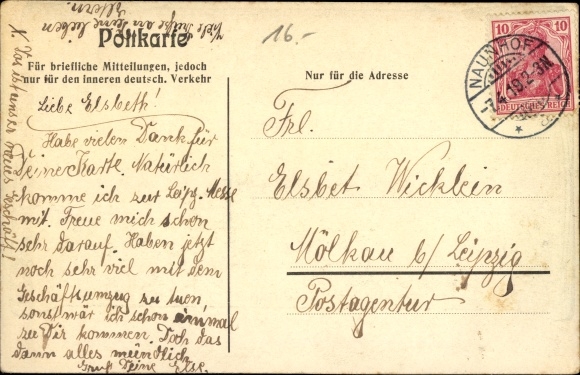 Viele Grüße an Deine lieben
Eltern.
16.-
Postkarte
Für briefliche Mitteilungen, jedoch
nur für den inneren deutsch. Verkehr
Nur für die Adresse
10 10
DEUTSCHES REICH
NAUNHOF
-7.4.18.2-3N
Liebe Elsbeth!
Habe vielen Dank für
Deine Karte. Natürlich
komme ich zur Leipz. Messe
mit. Freue mich schon
sehr darauf. Haben jetzt
noch sehr viel mit dem
Geschäftsumzug zu tuen,
sonst wär ich schon einmal
zu Dir kommen. Doch das
dann alles mündlich.
Gruß Deine Else.
neues Geschäft!
Frl.
Elsbet Wicklein
Mölkau b/ Leipzig
Postagentur